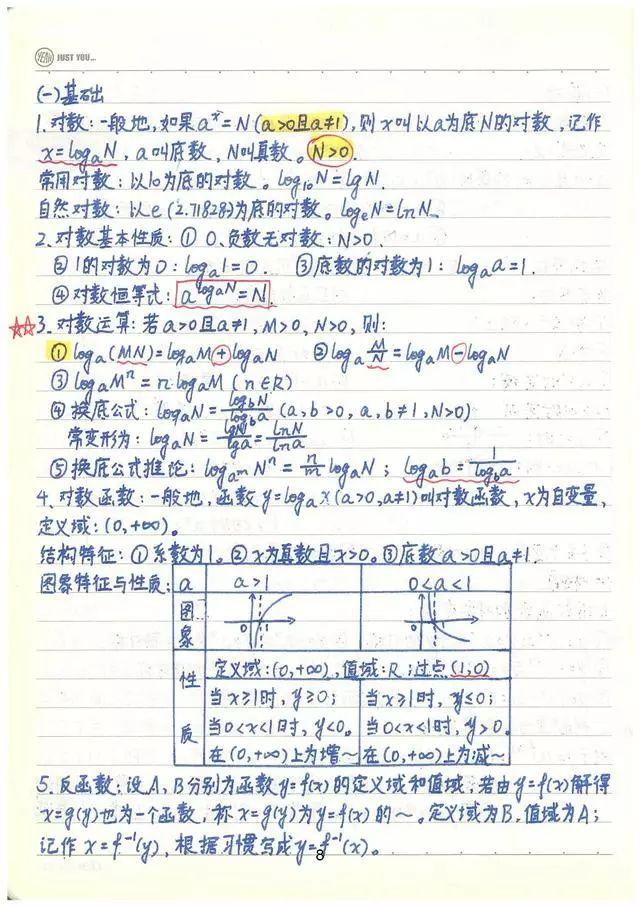 YEAH JUST YOU...
(一)基础
1. 对数:一般地,如果aˣ=N(a>0且a≠1),则x叫以a为底N的对数,记作
x=logₐN,a叫底数,N叫真数。N>0.
常用对数:以10为底的对数。log₁₀N=lgN.
自然对数:以e(2.71828)为底的对数。logₑN=lnN.
2. 对数基本性质:① 0、负数无对数:N>0.
② 1的对数为0:logₐ1=0. ③底数的对数为1:logₐa=1.
④对数恒等式:a^(logₐN)=N.
☆☆3. 对数运算:若a>0且a≠1,M>0,N>0,则:
① logₐ(MN)=logₐM+logₐN ②logₐ M/N=logₐM-logₐN
③ logₐMⁿ=n·logₐM(n∈R)
④ 换底公式:logₐN=log_bN/log_ba (a,b>0,a,b≠1,N>0)
常变形为:logₐN=lgN/lga=lnN/lna
⑤换底公式推论:log_(aᵐ)Nⁿ=n/m logₐN;logₐb=1/log_ba
4. 对数函数:一般地,函数y=logₐx(a>0,a≠1)叫对数函数,x为自变量,
定义域:(0,+∞)。
结构特征:①系数为1。②x为真数且x>0。③底数a>0且a≠1.
图象特征与性质: a a>1 0<a<1
图象 0 1 0 1
性质 定义域:(0,+∞),值域:R;过点(1,0)
当x≥1时,y≥0; 当x≥1时,y≤0;
当0<x<1时,y<0。 当0<x<1时,y>0。
在(0,+∞)上为增~ 在(0,+∞)上为减~
5. 反函数:设A,B分别为函数y=f(x)的定义域和值域,若由y=f(x)解得
x=g(y)也为一个函数,称x=g(y)为y=f(x)的~。定义域为B,值域为A;
记作x=f⁻¹(y),根据习惯写成y=f⁻¹(x)。
8